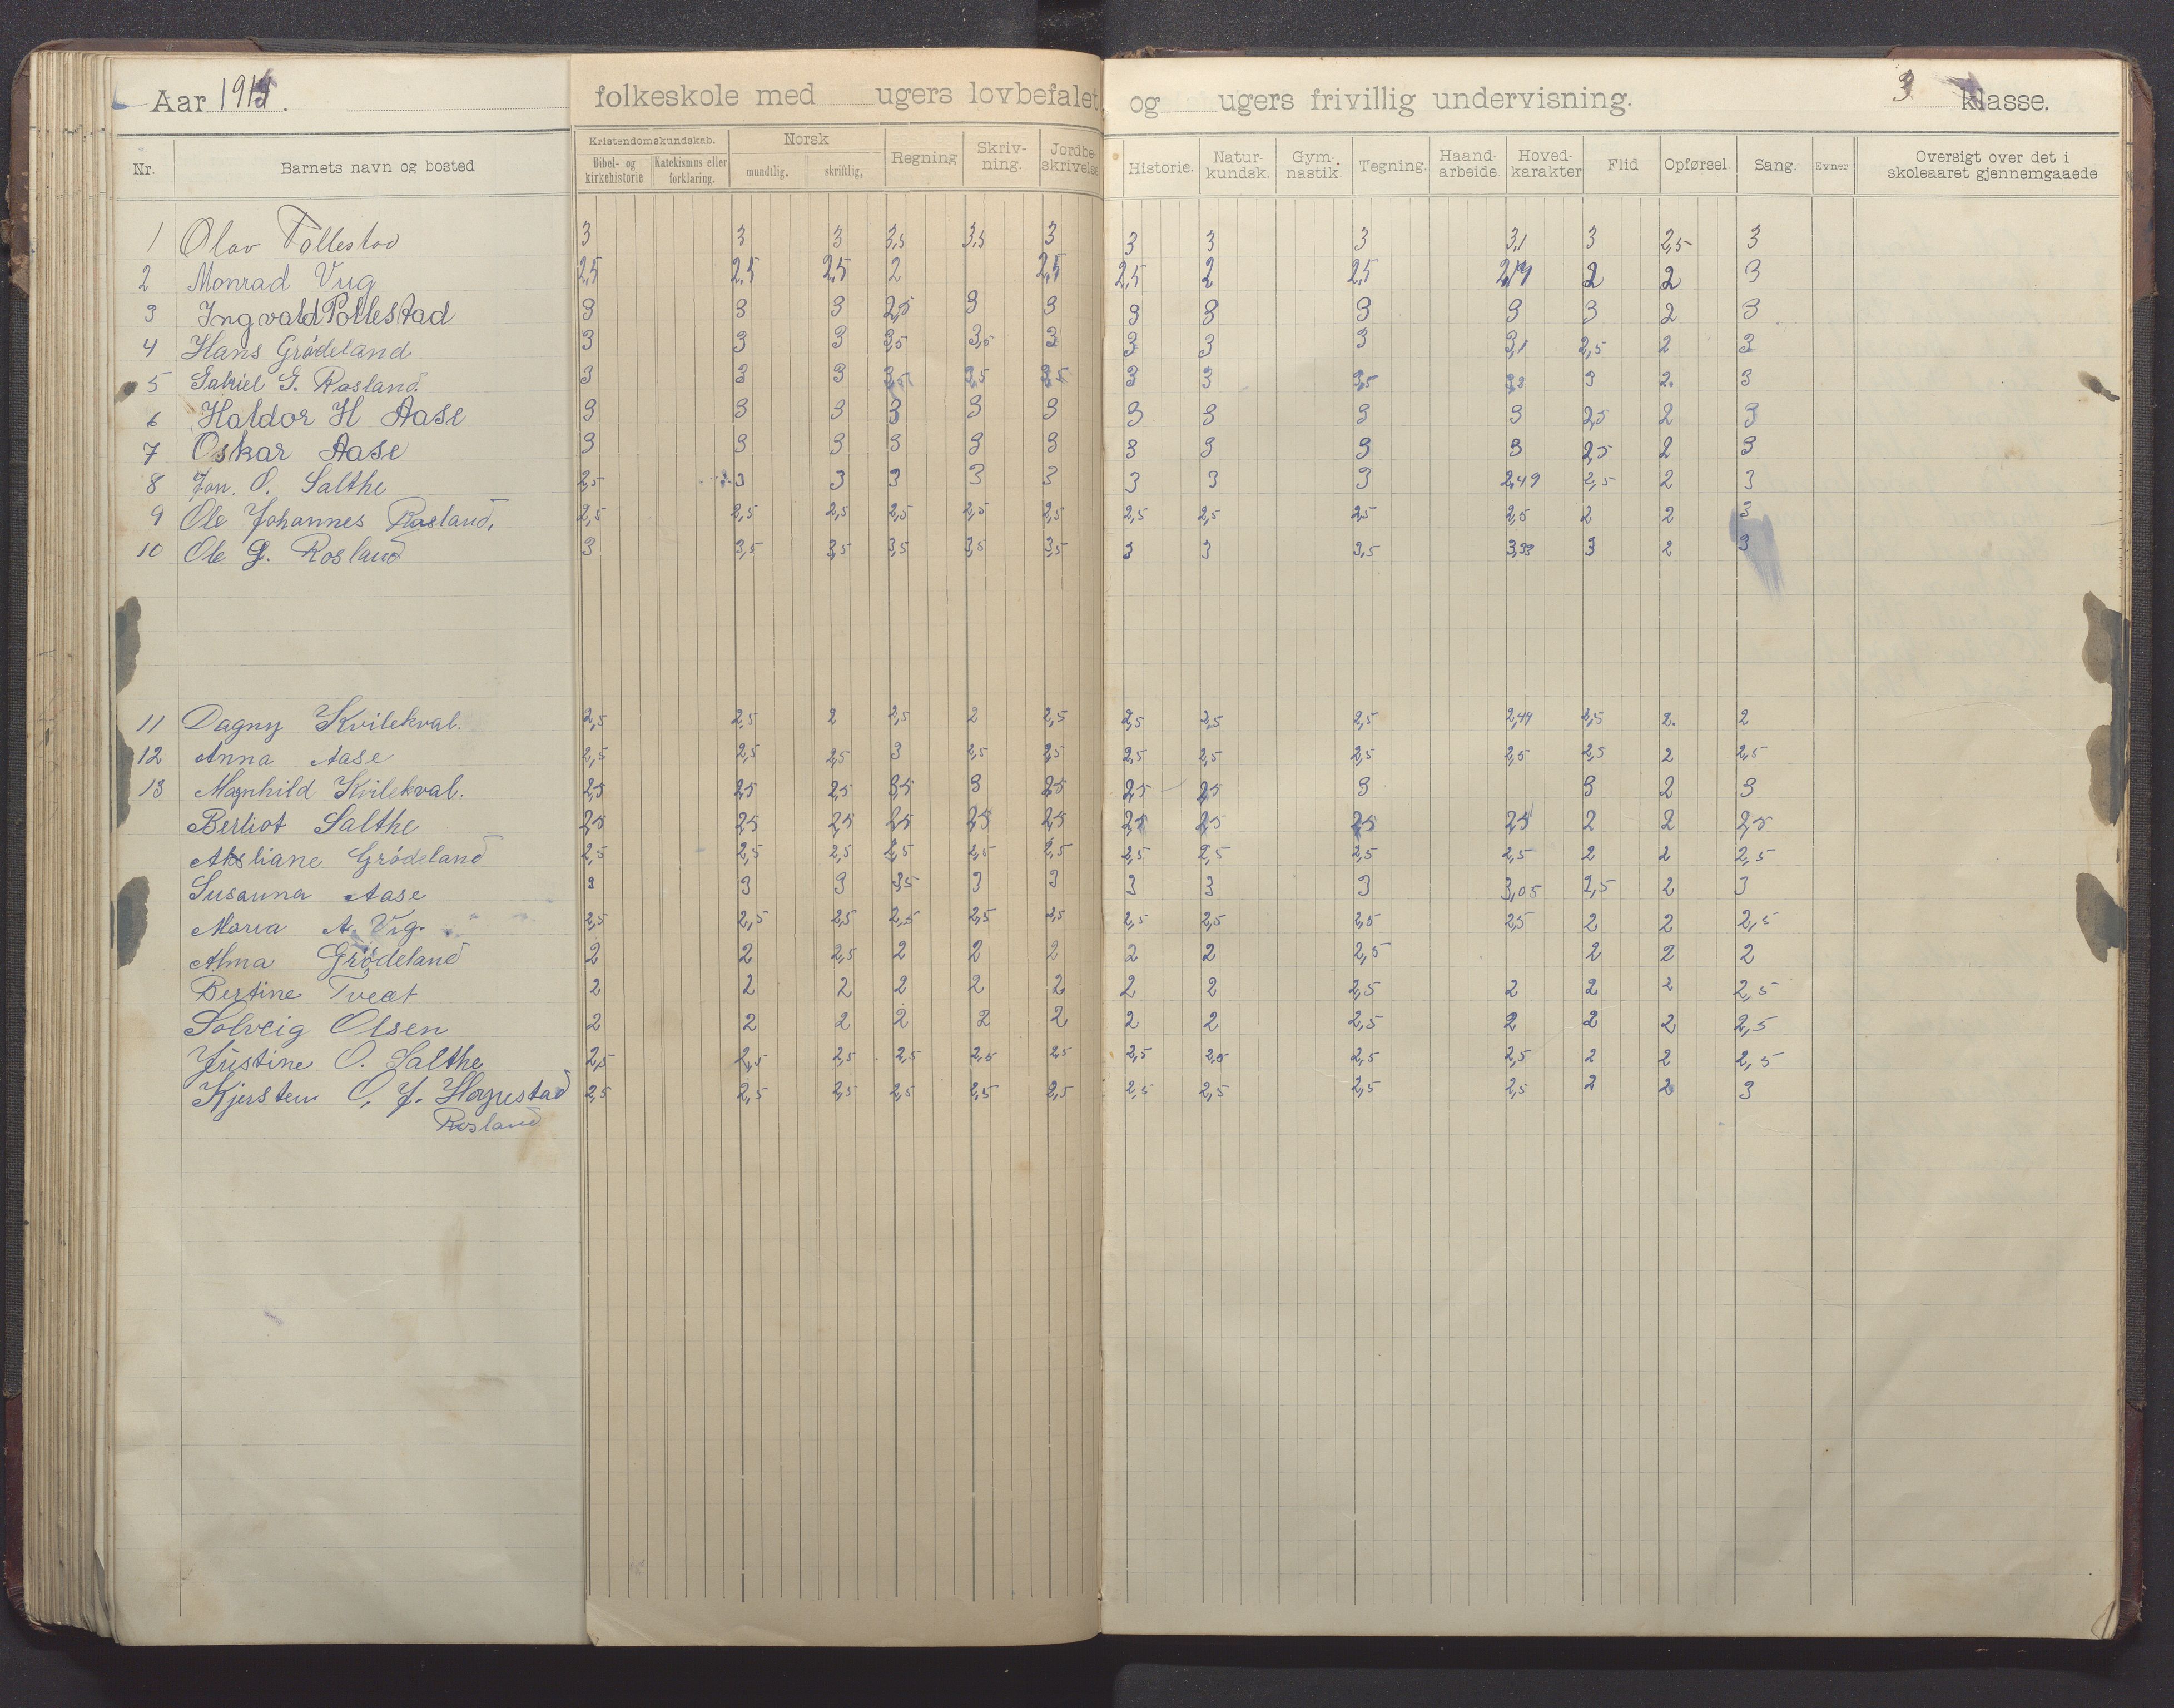 Aar 191
folkeskole med ugers lovbefalet og ugers frivillig undervisning. 3 klasse.
Nr. Barnets navn og bosted Kristendomskundskab. Bibel- og kirkehistorie Katekismus eller forklaring. Norsk mundtlig. skriftlig, Regning Skriv-ning. Jordbe-skrivelse Historie. Natur-kundsk. Gym-nastik. Tegning. Haand-arbeide Hoved-karakter Flid Opførsel. Sang. Evner Oversigt over det i skoleaaret gjennemgaaede
1 Olav Pollestad 3 3 3 3,5 3,5 3 3 3 3 3,1 3 2,5 3
2 Monrad Vug 2,5 2,5 2,5 2 2,5 2,5 2 2,5 2 2 3
3 Ingvald Pollestad 3 3 3 2,5 3 3 3 3 3 3 3 2 3
4 Hans Grødeland 3 3 3 3,5 3,5 3 3 3 3 3,1 2,5 2 3
5 Gabriel G. Rosland. 3 3 3 3,5 3,5 3,5 3 3 3,5 3 2. 3
6 Haldor H Aase 3 3 3 3 3 3 3 3 3 3 2,5 2 3
7 Oskar Aase 3 3 3 3 3 3 3 3 3 3 2,5 2 3
8 Jon. O. Salthe 2,5 3 3 3 3 3 3 3 3 2,49 2,5 2 3
9 Ole Johannes Rosland, 2,5 2,5 2,5 2,5 2,5 2,5 2,5 2,5 2,5 2,5 2 2 3
10 Ole G. Rosland 3 3,5 3,5 3,5 3,5 3,5 3 3 3,5 3,33 3 2 3
11 Dagny Kvilekval. 2,5 2,5 2 2,5 2 2,5 2,5 2,5 2,5 2,44 2,5 2. 2
12 Anna Aase 2,5 2,5 2,5 3 2,5 2,5 2,5 2,5 2,5 2,5 2,5 2 2,5
13 Magnhild Kvilekval. 2,5 2,5 2,5 3,5 3 2,5 2,5 2,5 3 3 2 3
Berliot Salthe 2,5 2,5 2,5 2,5 2,5 2,5 2,5 2,5 2,5 2,5 2 2 2,5
Aksliane Grødeland 2,5 2,5 2,5 2,5 2,5 2,5 2,5 2,5 2,5 2,5 2 2 2,5
Susanna Aase 3 3 3 3,5 3 3 3 3 3 3,05 2,5 2 3
Maria A. Vig. 2,5 2,5 2,5 2,5 2,5 2,5 2,5 2,5 2,5 2,5 2 2 2,5
Alma Grødeland 2 2 2,5 2 2 2 2 2 2,5 2 2 2
Bertine Tveet 2 2 2 2 2 2 2 2 2,5 2 2 2 2,5
Solveig Olsen 2 2 2 2 2 2 2 2 2,5 2 2 2 2,5
Justine O. Salthe 2,5 2,5 2,5 2,5 2,5 2,5 2,5 2,5 2,5 2,5 2 2 2,5
Kjersten O. J. Hognestad 2,5 2,5 2,5 2,5 2,5 2,5 2,5 2,5 2,5 2,5 2 2 3
Rosland